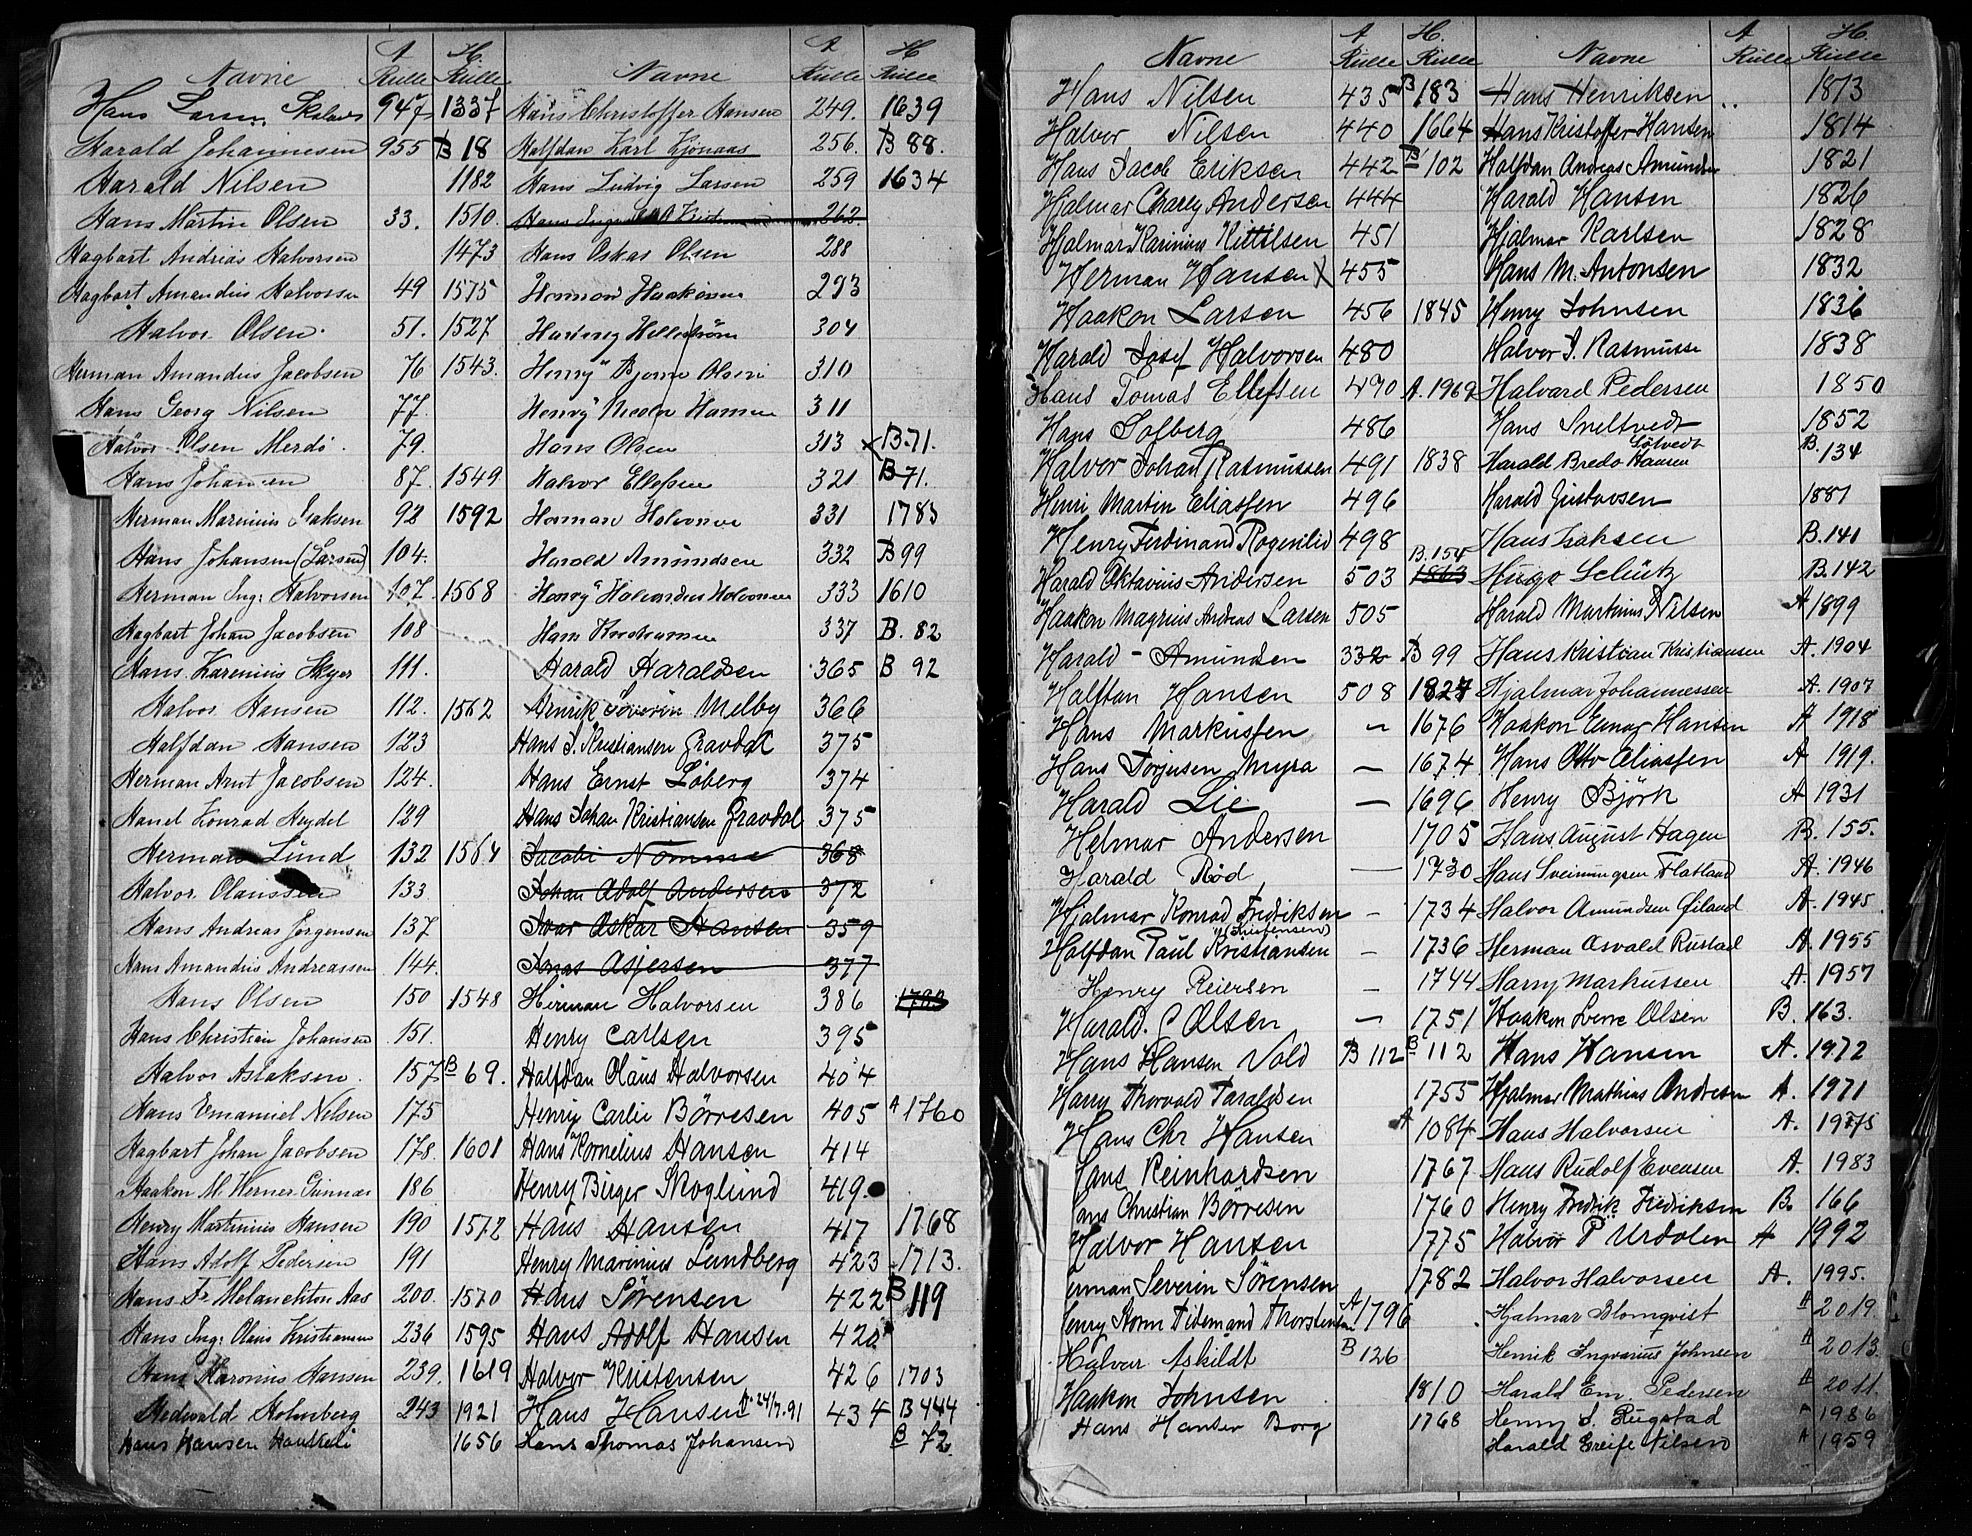 Navne A Rulle H. Rulle
Hans Larsen Skalnes 947 1337
Harald Johannesen 955 B 18
Harald Nilsen 1182
Hans Martin Olsen 33. 1510.
Hagbart Andreas Halvorsen 1473
Hagbart Amandus Halvorsen 49 1575
Halvor Olsen. 51. 1527
Herman Amandus Jacobsen 76 1543.
Hans Georg Nilsen 77.
Halvor Olsen Merdö. 79.
Hans Johansen 87. 1549
Herman Marinius Isaksen 92 1592
Hans Johansen (Larsen) 104.
Herman Ing: Halvorsen 107. 1568
Hagbart Johan Jacobsen 108
Hans Karenius 111.
Halvor Hansen 112. 1562
Halfdan Hansen 123
Herman Arnt Jacobsen 124.
Konrad Heydel 129
Herman Lund 132 1564
Halvor Olaussen 133
Hans Andreas Jørgensen 137
Hans Amandus Andreassen 144.
Hans Olsen 150 1548
Hans Christian Johansen 151.
Halvor Aslaksen. 157 B 69.
Hans Emanuel Nilsen 175
Hagbart Johan Jacobsen 178. 1601
Haakon M. Werner Gunnar 186
Henry Martinius Hansen 190 1572
Hans Adolf Pedersen 191
Hans Fr Melanchton Aas 200. 1570
Hans Ing: Olaus Kristiansen 236 1595
Hans Maronius Hansen 239. 1619
Hedevald Holmberg 243 1921
Hans Hansen 1656
Navne A Rulle H Rulle
Hans Christoffer Hansen 249. 1639
Halfdan Karl Kjönaas 256. B 88.
Hans Ludvig Larsen 259 1634
Hans 262.
Hans Oskar Olsen 288
Herman Haakonsen 293
Hartvig Hellström 304
Henry Bjarne Olsen 310
Henry Nicolai Hansen 311
Hans Olsen 313 x B.71.
Halvor Ellefsen 321 B 71.
Herman Halvorsen 331 1783
Harald Amundsen 332 B 99
Henry Halvorsen 333 1610
Hans 337 B. 82
Harald Haraldsen 365 B 92
Henrik Severin Melby 366
Hans J. Kristiansen Gravdal 375
Hans Ernst Löberg 374
Hans Johan Kristiansen Gravdal 375
Jacobi Nomme 368
Johan Adolf Andersen 372
Ivar Oskar Hansen 359
Jonas Asjersen 377
Herman Halvorsen 386 1783
Henry Carlsen 395
Halfdan Olaus Halvorsen 404
Henry Carlie Börresen 405 A 1760
Hans Kornelius Hansen 414
Henry Birger Skoglund 419.
Hans Hansen 417 1768
Henry Marinius Lundberg 423 1713.
Hans Sörensen 422 B 119
Hans Adolf Hansen 420
Halvor Kristensen 426 1703
Hans Hansen 24/7.91 434 B 444
Hans Thomas Johansen B 72
Navne A Rulle H. Rulle
Hans Nilsen 435 B 183
Halvor Nilsen 440 1664
Hans Jacob Eriksen 442 B 102
Hjalmar Charly Andersen 444
Hjalmar Karinius Kittilsen 451
Herman Hansen X 455
Haakon Larsen 456 1845
Harald Josef Halvorsen 480
Hans Tomas Ellefsen 490 A. 1969
Hans Solberg 486
Halvor Johan Rasmussen 491 1838
Henri Martin Eliassen 496
Henry Ferdinand Rogenlid 498
Harald Oktavius Andersen 503 B. 154 1863
Haakon Magnus Andreas Larsen 505
Harald - Amundsen 332 B 99
Halftan Hansen 508 1827
Hans Markussen – 1676
Hans Torjusen Myra – 1674
Harald Lie – 1696
Helmar Andersen 1705
Harald Röd – 1730
Hjalmar Konrad Fredriksen – 1734
Halfdan Paul Kristiansen (Kristensen) – 1736
Henry Reiersen – 1744
Harald. C Olsen – 1751
Hans Hansen Vold B 112 B 112
Harry Thorvald Taraldsen 1755
Hans Chr Hansen A 1084
Hans Reinhardsen 1767
ans Christian Börresen 1760
Halvor Hansen 1775
erman Severin Sörensen 1782
Henry Storm Tidemand Thorstensen A 1796
Halvor Askildt B 126
Haakon Johnsen 1810
Hans Hansen Borg 1768
Navne A Rulle H. Rulle
Hans Henriksen 1813
Hans Kristoffer Hansen 1814
Halfdan Andreas Amundsen 1821
Harald Hansen 1826
Hjalmar Karlsen 1828
Hans M. Antonsen 1832
Henry Johnsen 1836
Halvor J. Rasmusse 1838
Halvard Pedersen 1850
Hans Sneltvedt 1852
Harald Bredo Hansen Lotvedt B. 134
Harald Gustavsen 1881
Hans Isaksen B. 141
Hugo Schütz B. 142
Harald Martinius Nilsen A 1899
Hans Kristian Kristiansen A. 1904
Hjalmar Johannessen A. 1907
Haakon Einar Hansen A 1918
Hans Otto Eliassen A 1919.
Henry Björk A 1931
Hans August Hagen B. 155.
Hans Sveinungsen Flatland A. 1946
Halvor Amundsen Øiland A. 1945
Herman Osvald Rustad A. 1955
Harry Markussen A. 1957
Haakon Sverre Olsen B. 163.
Hans Hansen A. 1972
Hjalmar Mathias Andresen A. 1971
Hans Halvorsen A. 1975
Hans Rudolf Evensen A. 1983
Henry Fredrik Fredriksen B. 166
Halvor P Urdalen A 1992
Halvor Halvorsen A. 1995.
Hjalmar Blomqvist A 2019.
Henrik Ingvarius Johnsen A 2013.
Harald Em. Pedersen A 2011.
Henry S. Rugstad A 1986
Harald Greife Nilsen A 1959